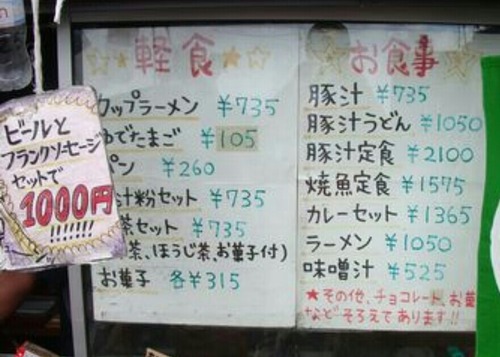 ビールと
フランクソーセージ
セットで
1000円
!!!!!!!
★軽食★☆
カップラーメン ¥735
ゆでたまご ¥105
パン ¥260
汁粉セット ¥735
茶セット ¥735
茶、ほうじ茶、お菓子付)
お菓子 各¥315
お食事
豚汁 ¥735
豚汁うどん ¥1050
豚汁定食 ¥2100
焼魚定食 ¥1575
カレーセット ¥1365
ラーメン ¥1050
味噌汁 ¥525
★その他、チョコレート、お菓
などそろえてあります!!